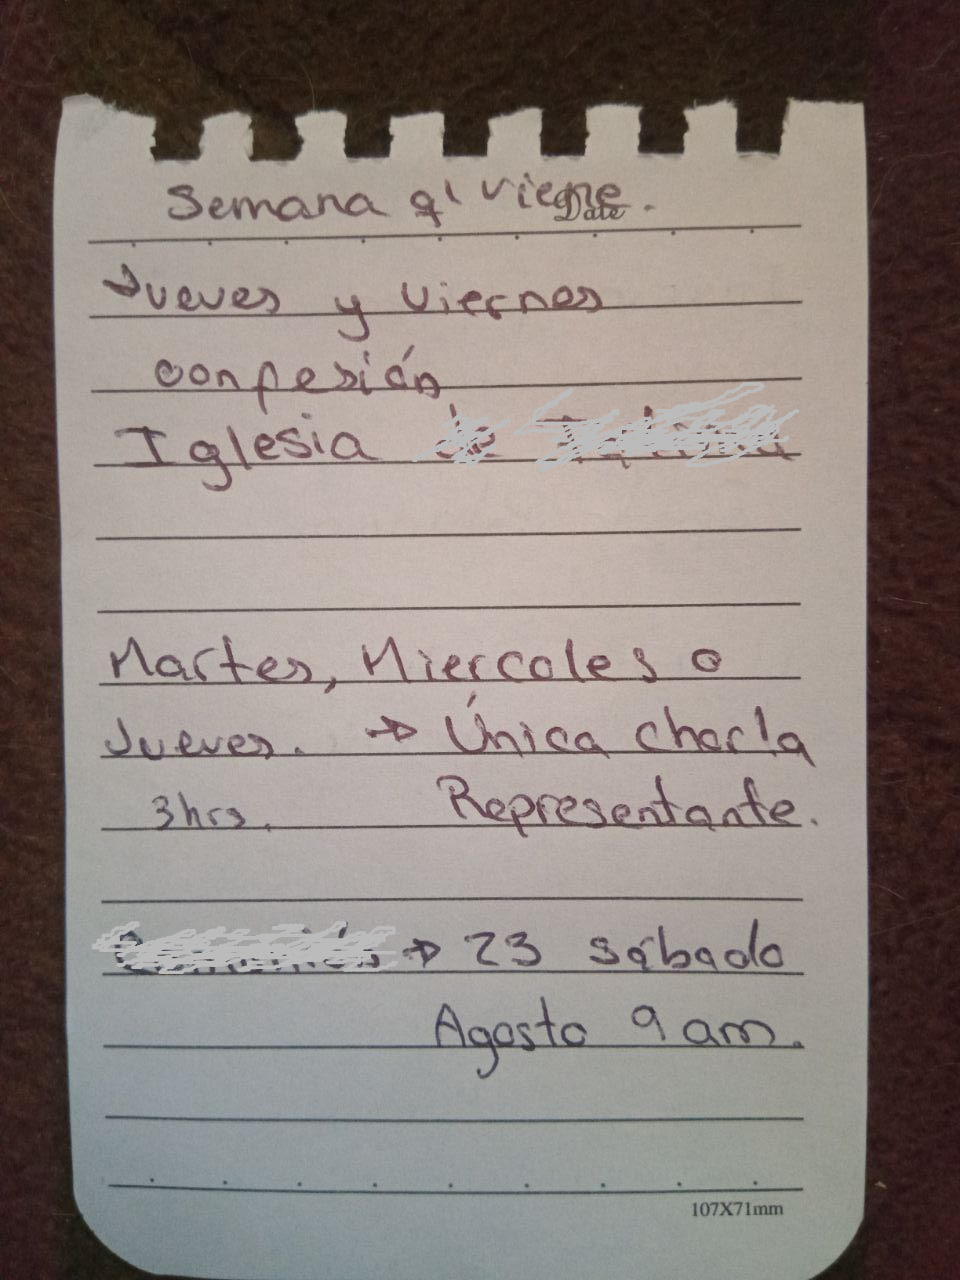 Semana q' viene.
Date
Jueves y viernes
confesión
Iglesia
Martes, Miercoles o
Jueves. → Única charla
3hrs. Representante.
→ 23 sábado
Agosto 9 am.
107X71mm